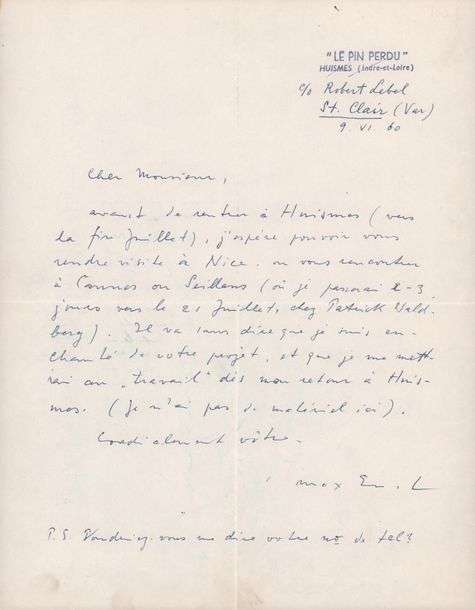 "LE PIN PERDU"
HUISMES (Indre-et-Loire)
c/o Robert Lebel
St. Clair (Var)
9. VI 60
Cher Monsieur,
avant de rentrer à Huismes (vers
la fin Juillet), j'espère pouvoir vous
rendre visite à Nice. ou vous rencontrer
à Cannes ou Seillans (où je passerai 2-3
jours vers le 21 Juillet, chez Patrick Wald-
berg). Il va sans dire que je suis en-
chanté de votre projet, et que je me mett-
rai au "travail" dès mon retour à Huis-
mes. (Je n'ai pas de matériel ici).
Cordialement vôtre.
max Ernst
P.S. Voudriez-vous me dire votre no de tel?